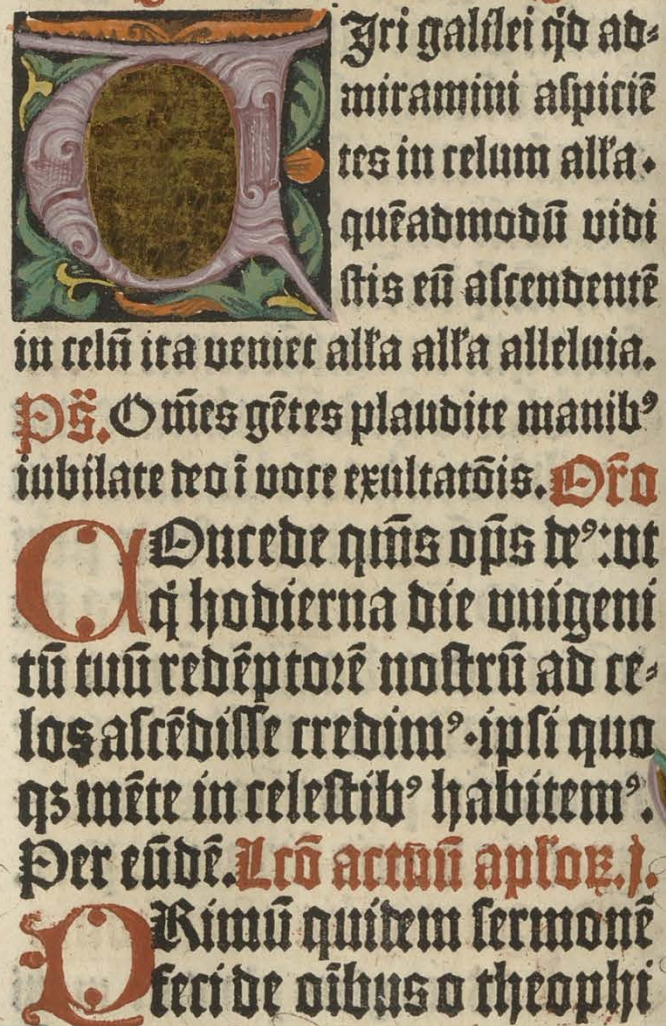 VJri galilei q̇d ad⸗
miramini aſpiciē
tes in celum alľa.
quēadmodū vidi
ſtis eū aſcendentē
in celū ita veniet alľa alľa alleluia.
Ps̄. Om̄es gētes plaudite manibꝰ
iubilate deo ī voce exultatōis. Or̄o
COncede qm̄s op̄s deꝰ: vt
q̇ hodierna die vnigeni
tū tuū redēptorē noſtrū ad ce⸗
los aſcēdiſſe credimꝰ. ipſi quo
qꝫ mēte in celeſtibꝰ habitemꝰ.
Per eūdē. Lcō actuū apľoꝝ. j.
PRimū quidem ſermonē
feci de oībus o theophi